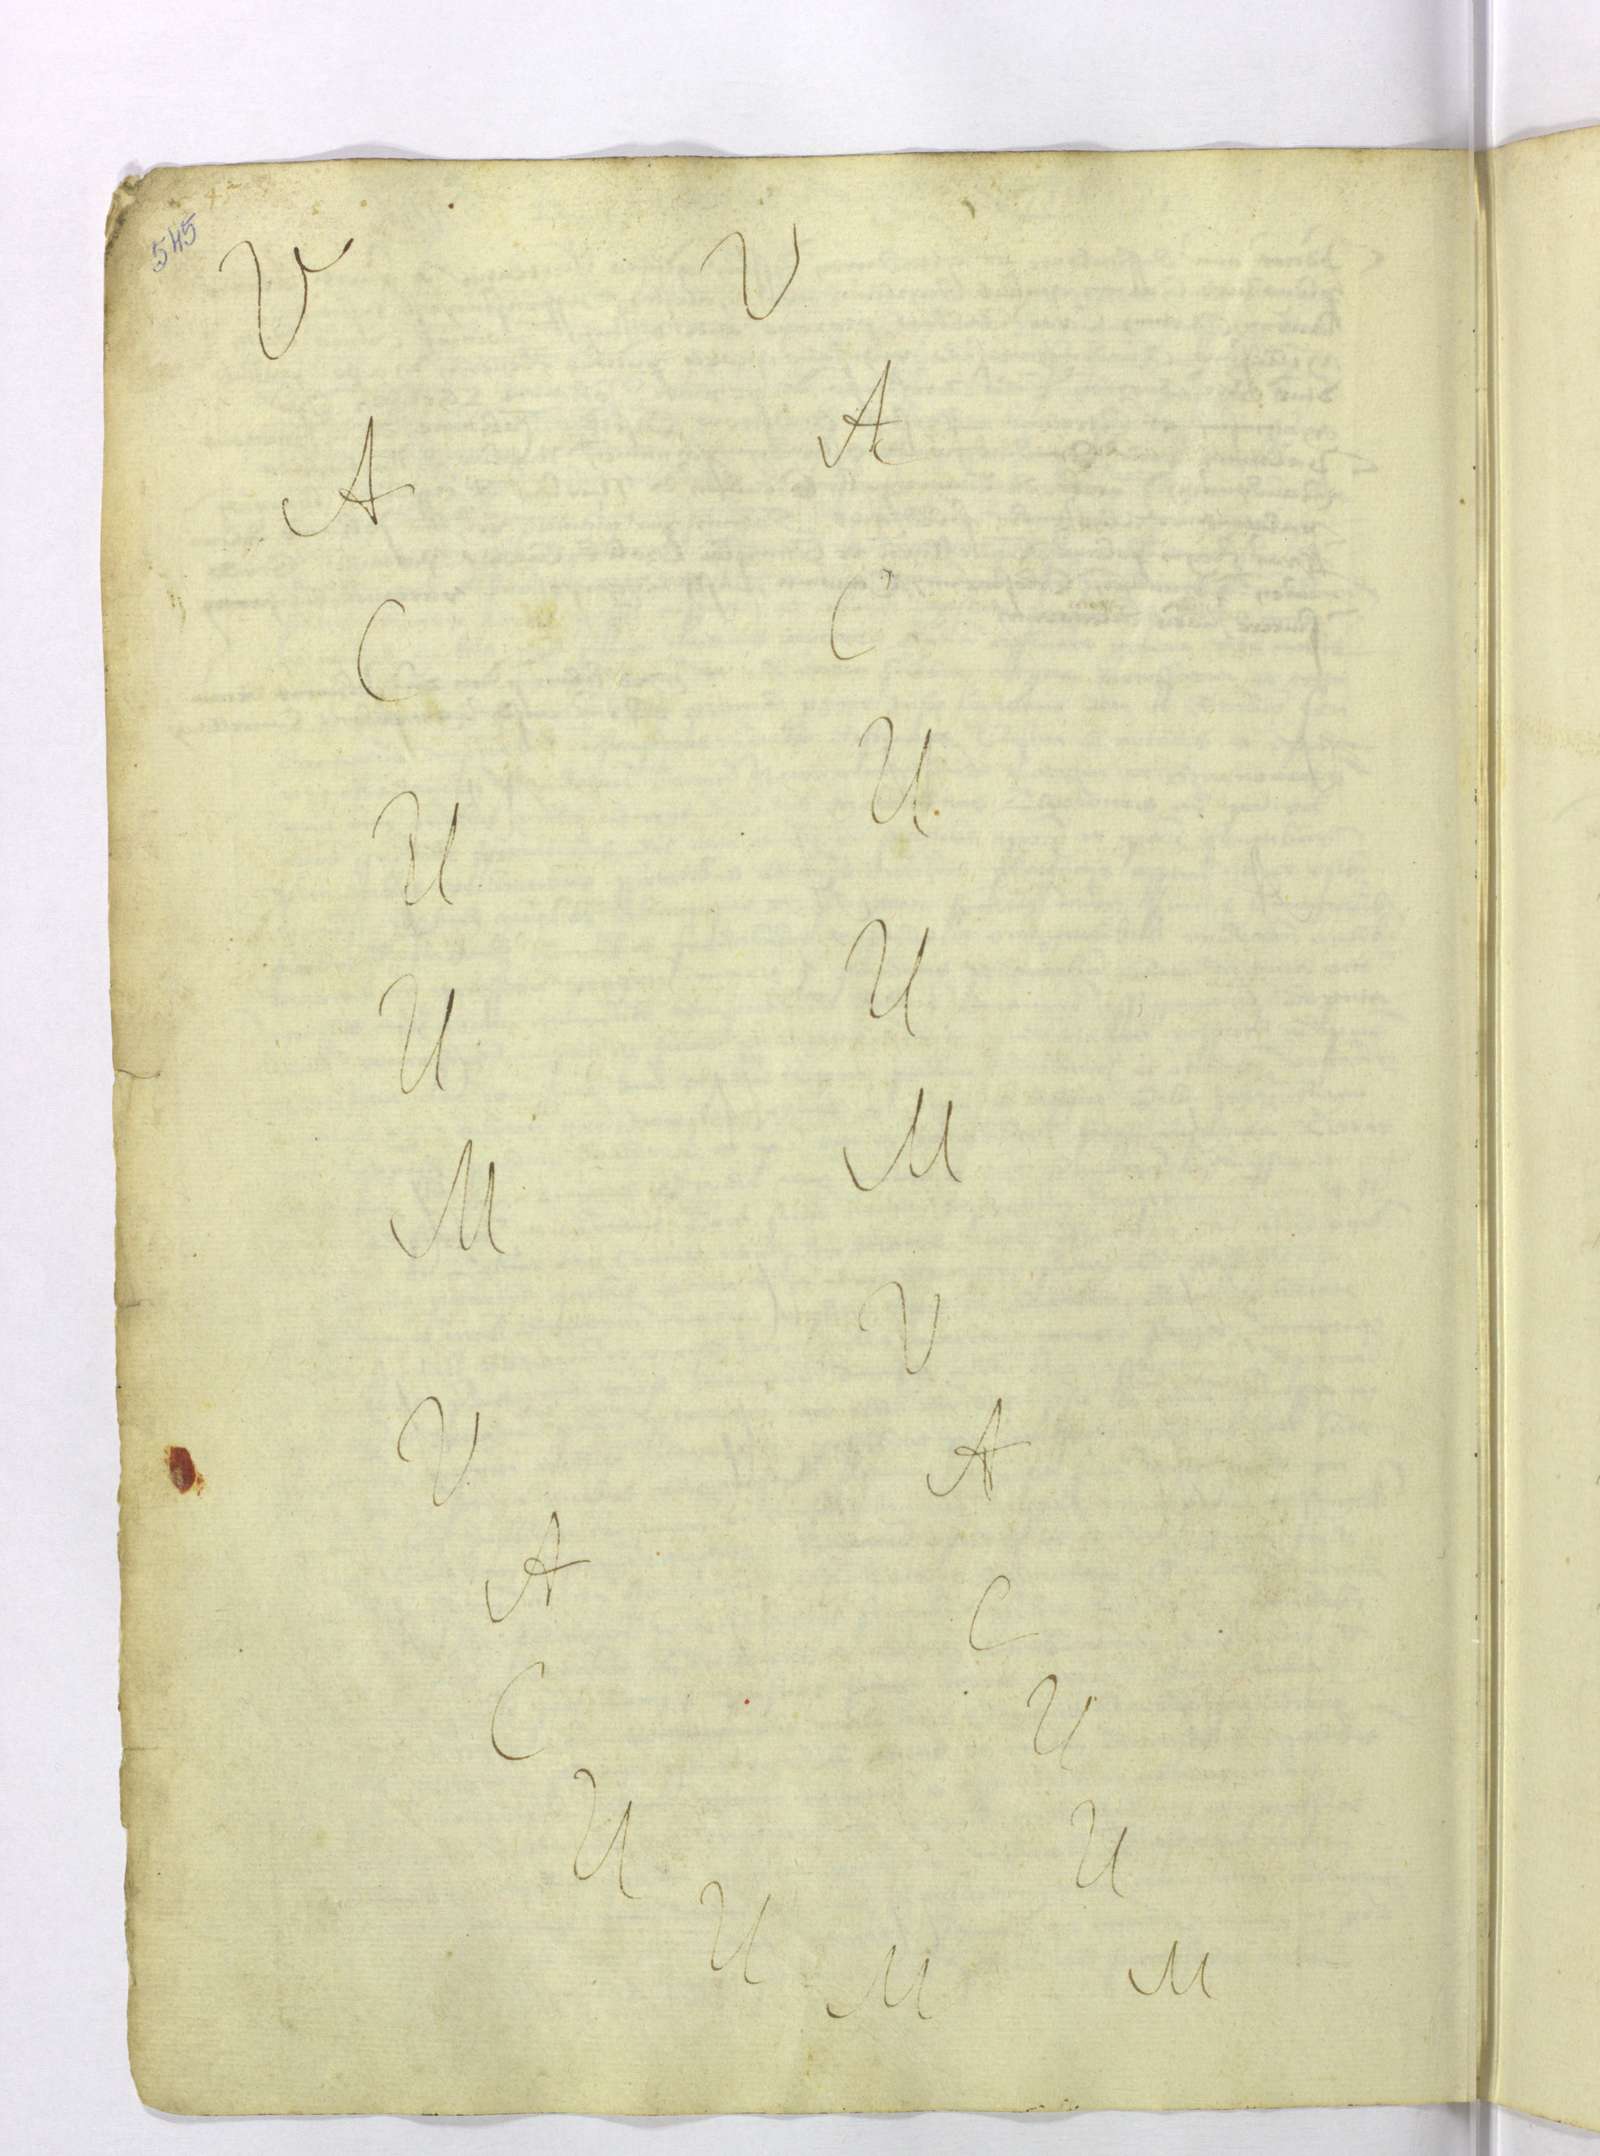 545
V
A
C
U
U
M
V
A
C
U
U
M
V
A
C
U
U
M
V
A
C
U
U
M